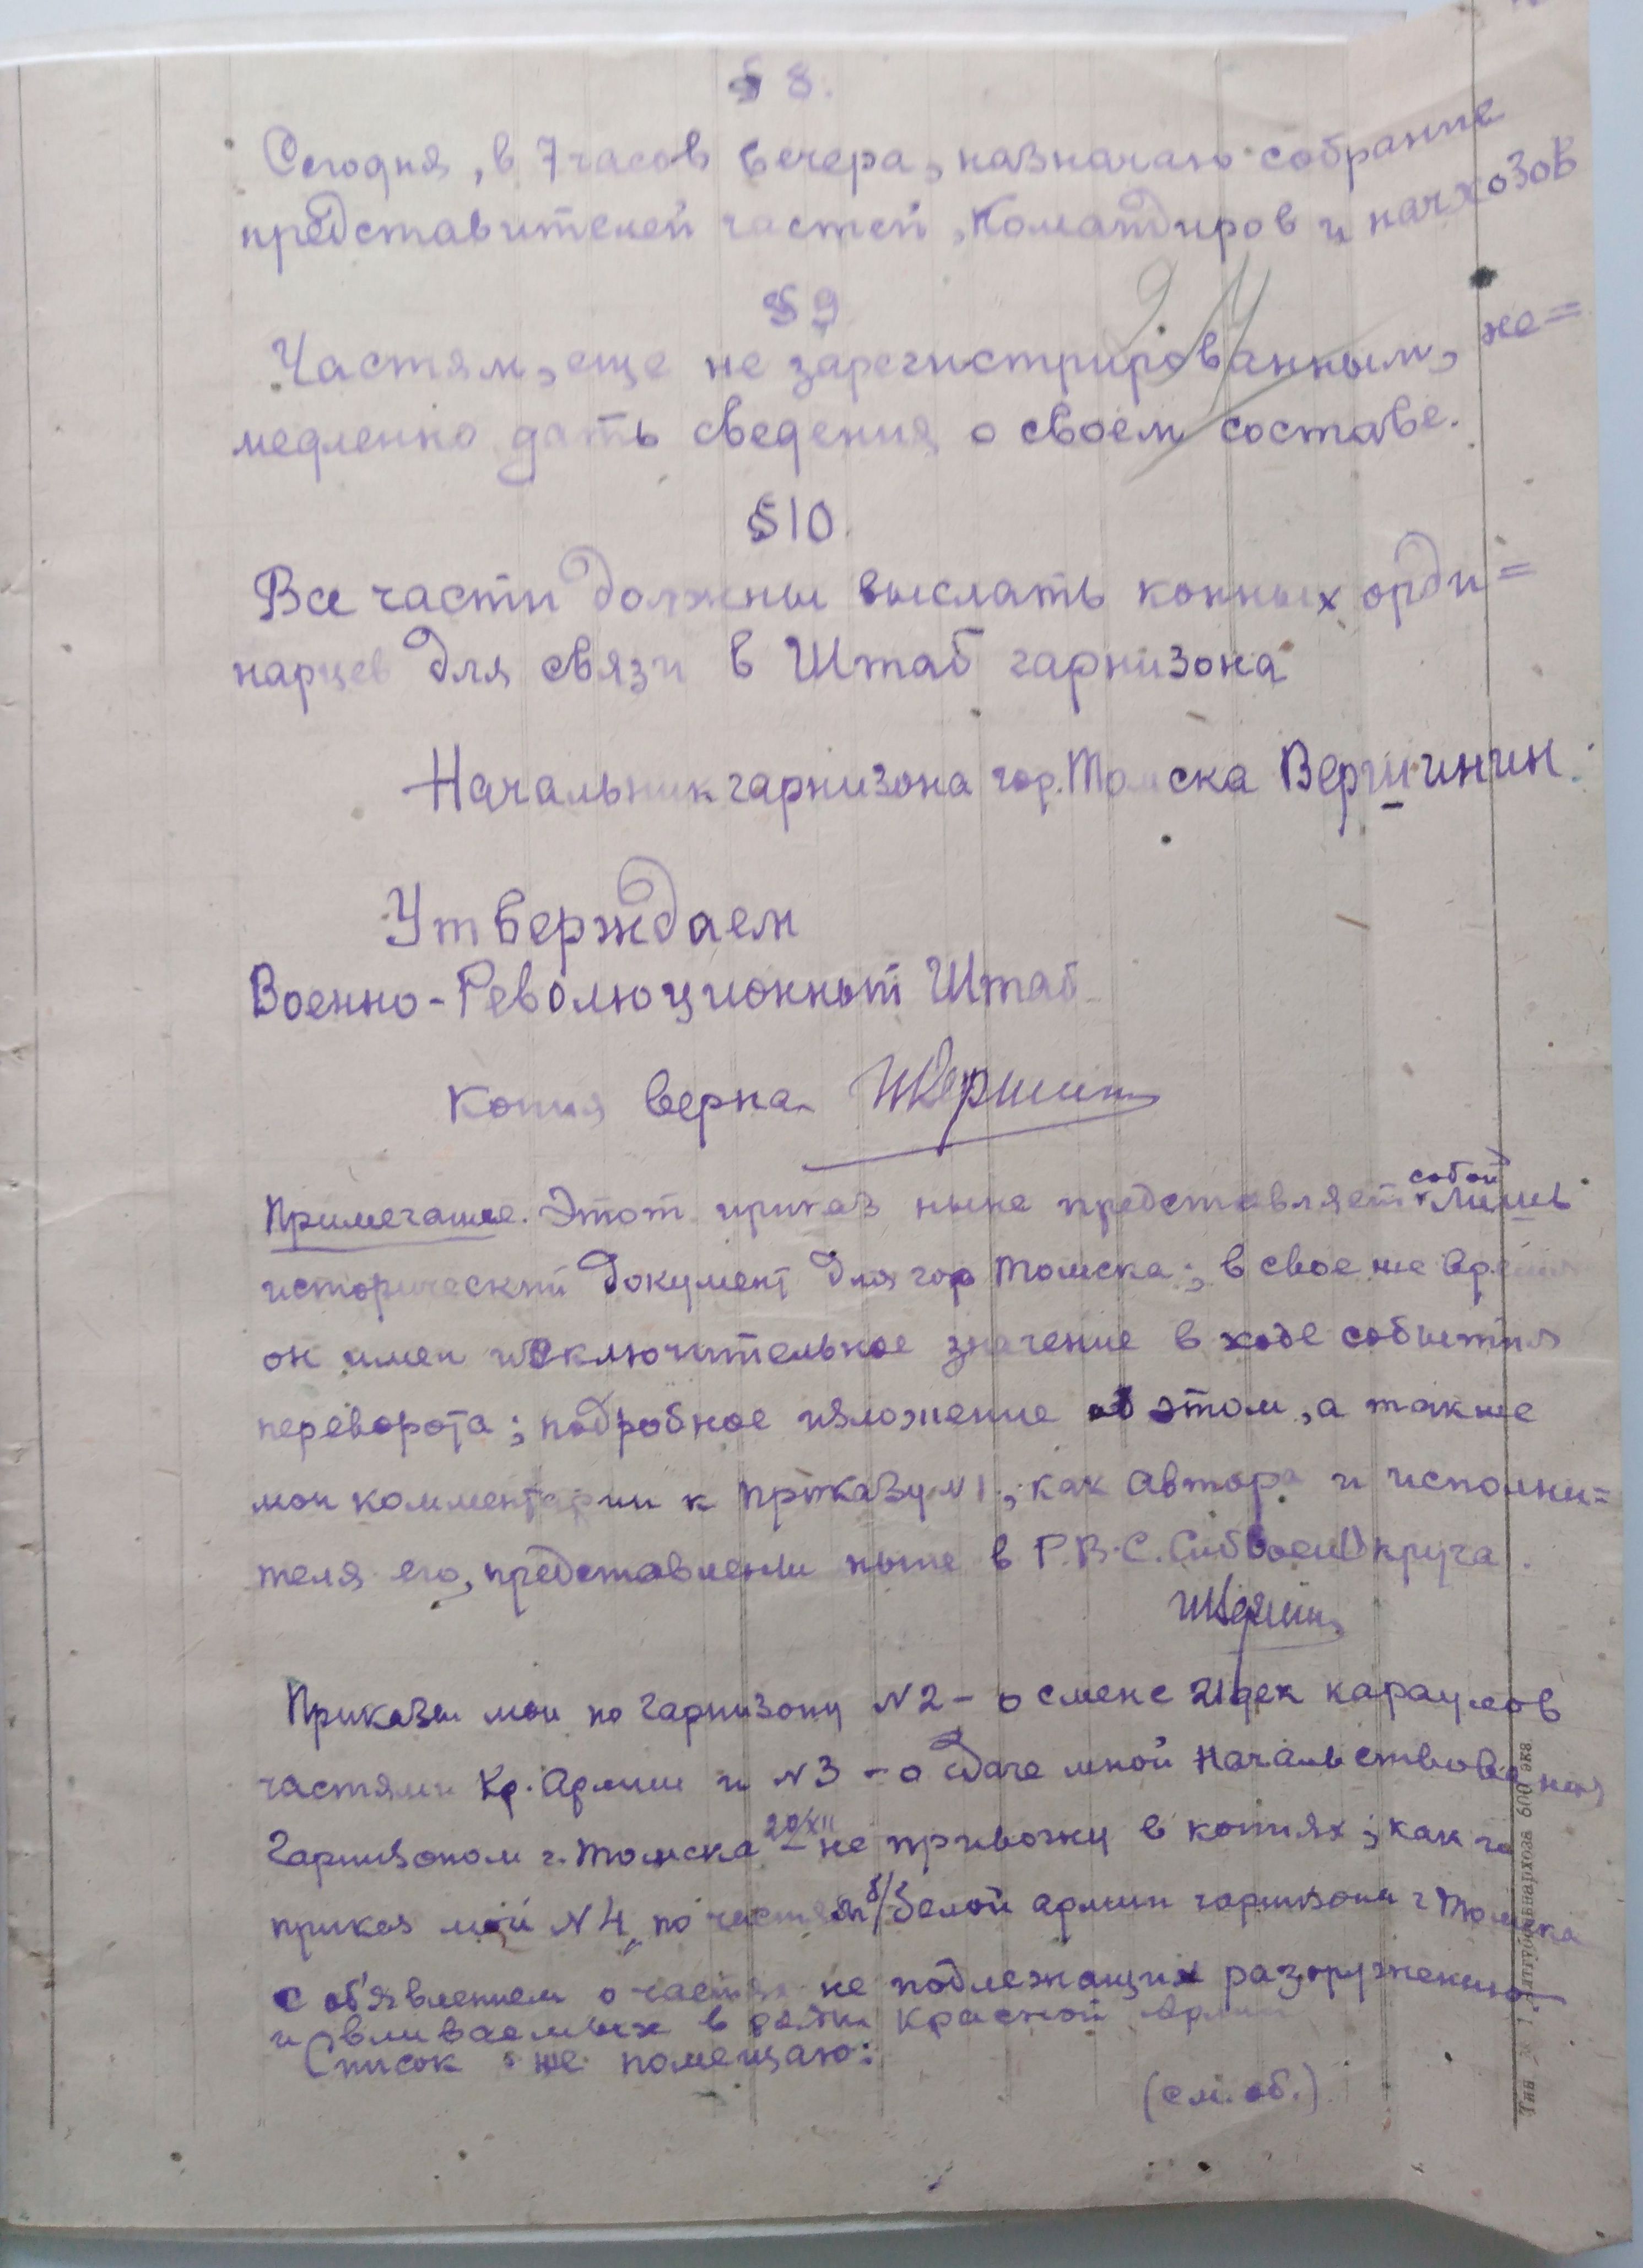 § 8.
Сегодня, в 7 часов вечера, назначаю собрание
представителей частей, Командиров и начхозов
§ 9
Частям, еще не зарегистрированным, не=
медленно дать сведения о своем составе.
§ 10.
Все части должны выслать конных орди=
нарцев для связи в Штаб гарнизона
Начальник гарнизона гор. Томска Вершинин.
Утверждаем
Военно-Революционный Штаб
Копия верна
Примечание. Этот приказ ныне представляет собой лишь
исторический документ для гор Томска; в свое же время
он имел исключительное значение в ходе события
переворота; подробное изложение об этом, а также
мои комментарии к приказу N1, как автора и исполни=
теля его, представлены ныне в Р.В.С. СибВоенОкруга.
Приказы мои по гарнизону N2 – о смене 21 дек караулов
частями Кр. Армии и N3 – о сдаче мной Начальствования
Гарнизоном г. Томска 20/XII – не привожу в копиях; как и
приказ мой N4 по частям б/белой армии гарнизона г Томска
с об'явлением о частях не подлежащих разоружению
и вливаемых в ряды Красной Армии
Список же помещаю:
(см. об.)